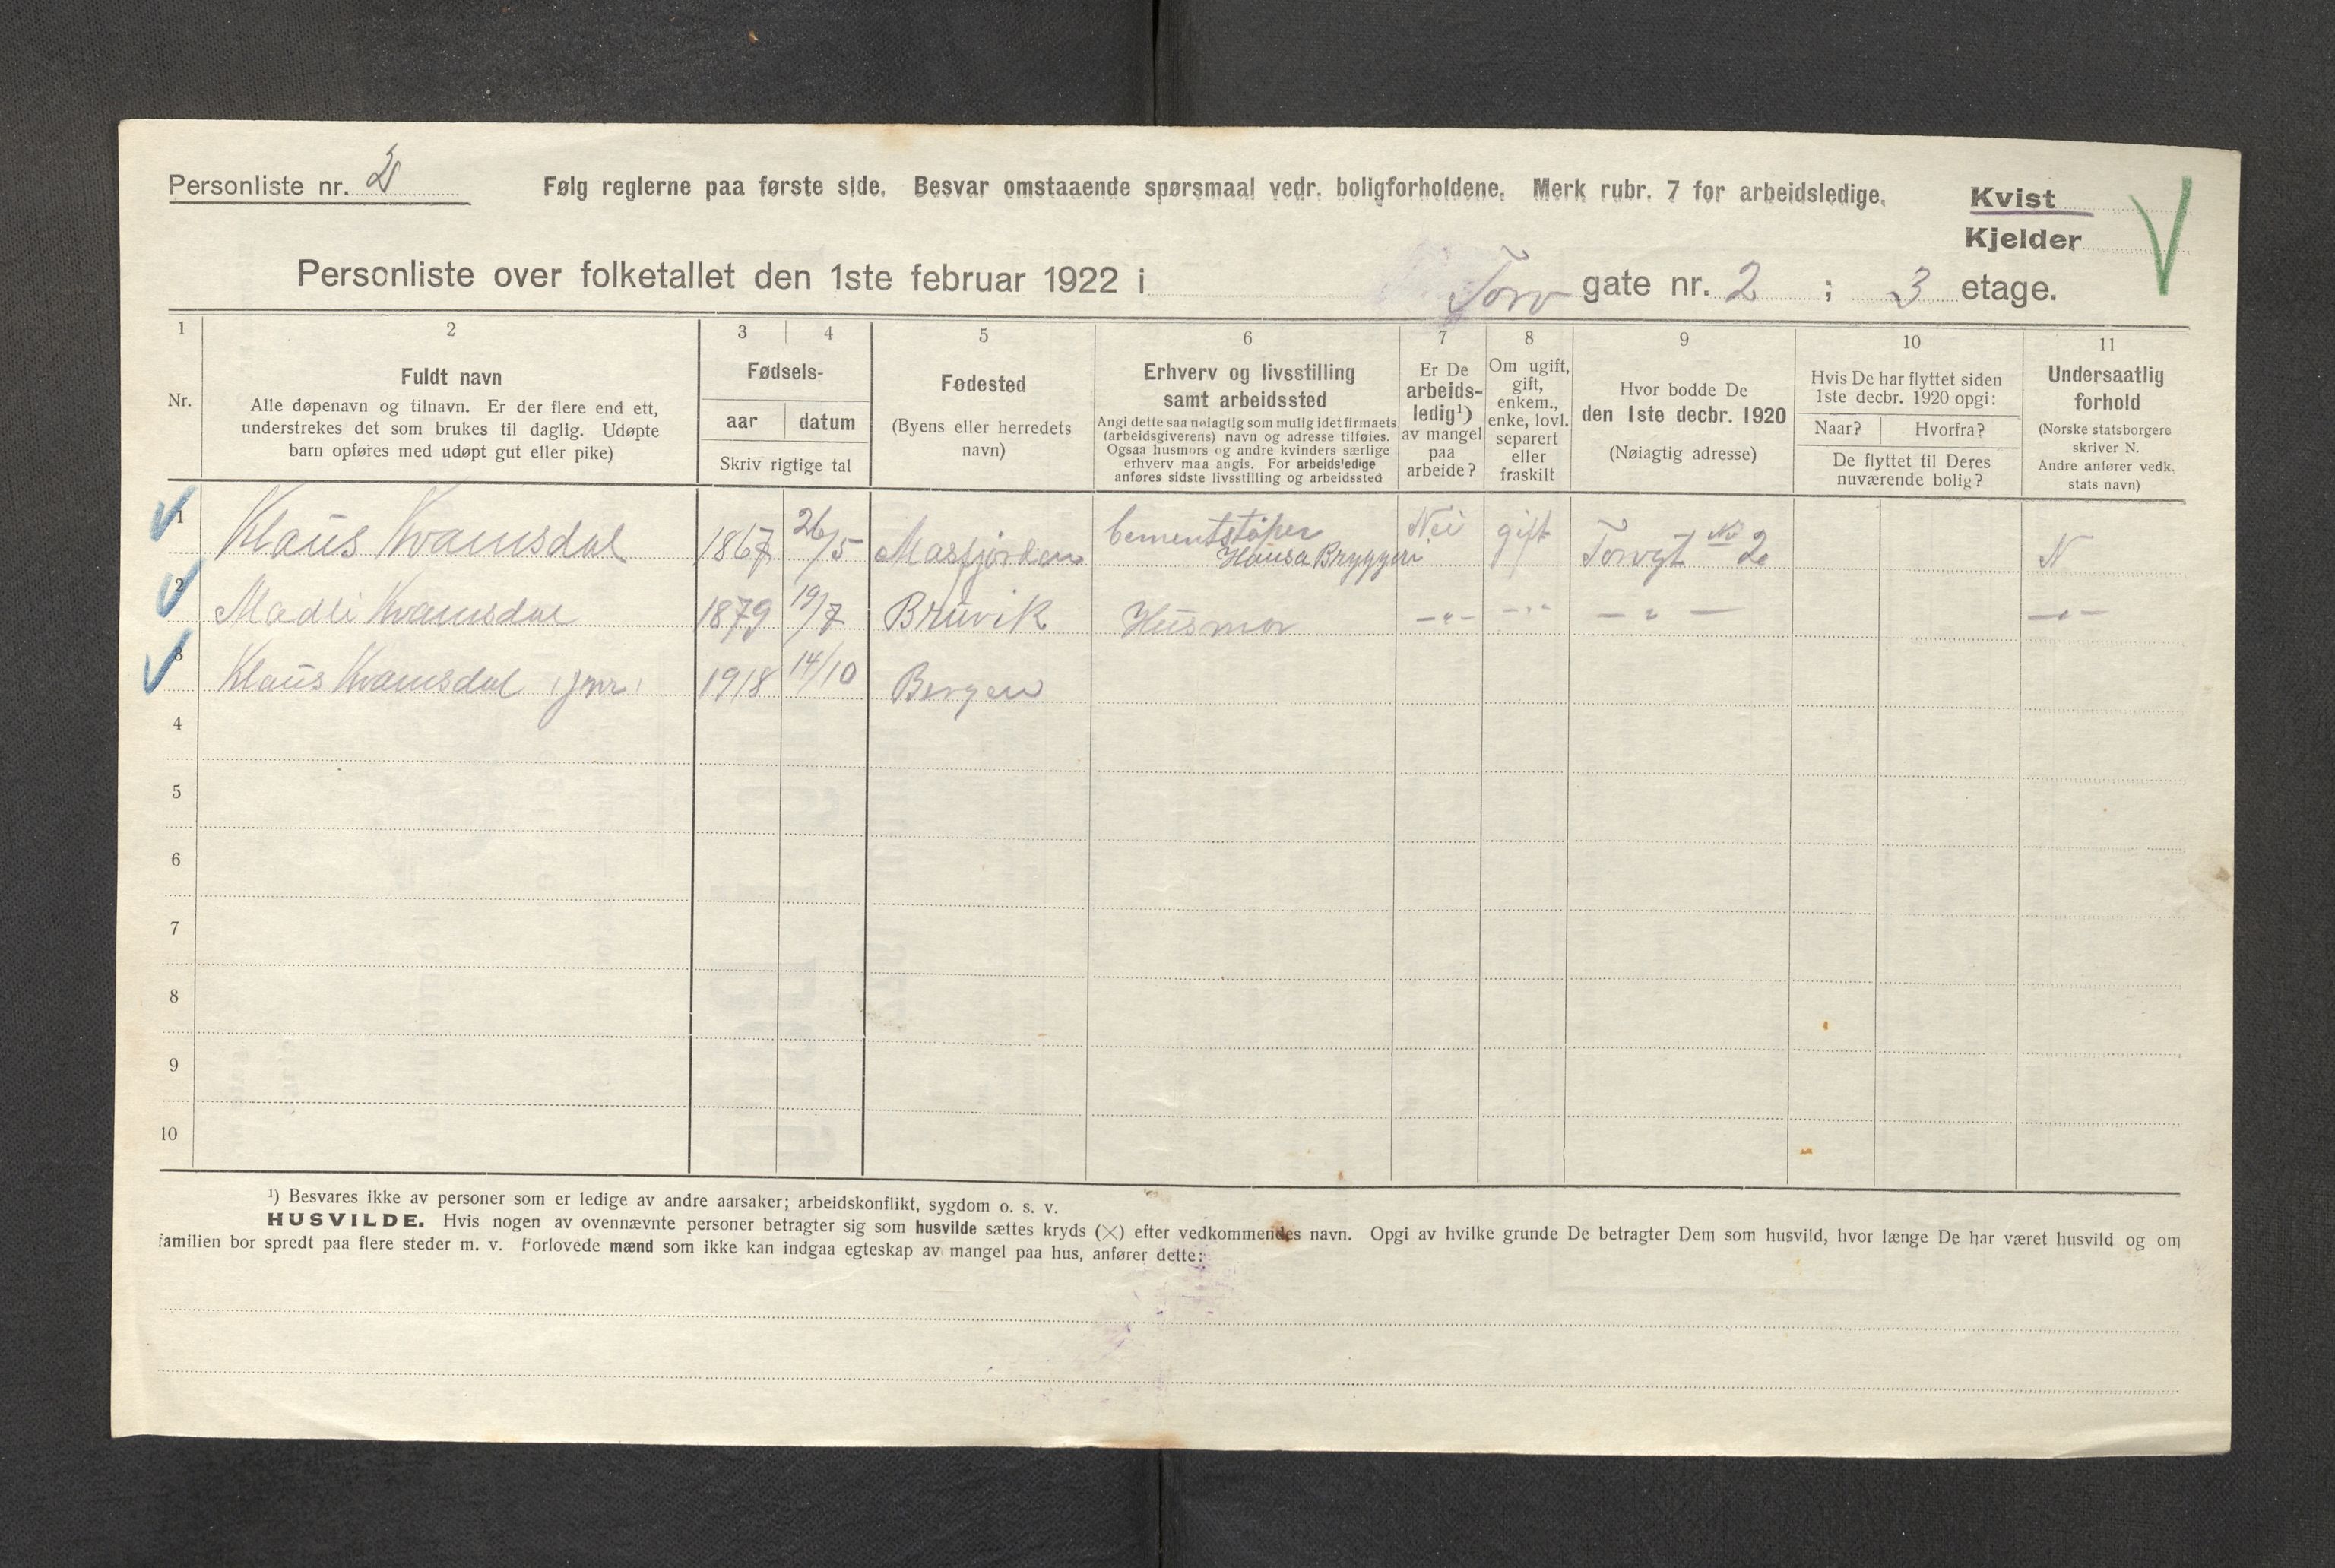 Personliste nr. 2
Følg reglerne paa første side. Besvar omstaaende spørsmaal vedr. boligforholdene. Merk rubr. 7 for arbeidsledige.
Kvist
Kjelder
Personliste over folketallet den 1ste februar 1922 i Torv gate nr. 2 ; 3 etage.
1 2 3 4 5 6 7 8 9 10 11
Nr.
Fuldt navn
Alle døpenavn og tilnavn. Er der flere end ett,
understrekes det som brukes til daglig. Udøpte
barn opføres med udøpt gut eller pike)
Fødsels-
aar datum
Skriv rigtige tal
Fødested
(Byens eller herredets
navn)
Erhverv og livsstilling
samt arbeidssted
Angi dette saa nøiagtig som mulig idet firmaets
(arbeidsgiverens) navn og adresse tilføies.
Ogsaa husmors og andre kvinders særlige
erhverv maa angis. For arbeidsledige
anføres sidste livsstilling og arbeidssted
Er De
arbeids-
ledig¹)
av mangel
paa
arbeide?
Om ugift,
gift,
enkem.,
enke, lovl.
separert
eller
fraskilt
Hvor bodde De
den 1ste decbr. 1920
(Nøiagtig adresse)
Hvis De har flyttet siden
1ste decbr. 1920 opgi:
Naar? Hvorfra?
De flyttet til Deres
nuværende bolig?
Undersaatlig
forhold
(Norske statsborgere
skriver N.
Andre anfører vedk.
stats navn)
1 Klaus Kvamsdal 1867 26/5 Masfjorden Cementstøper Hansa Bryggeri Nei gift Torvgt No 2 N
2 Madli Kvamsdal 1879 19/7 Bruvik Husmor —"— —"— — " — —"—
3 Klaus Kvamsdal jnr 1918 14/10 Bergen
4
5
6
7
8
9
10
¹) Besvares ikke av personer som er ledige av andre aarsaker; arbeidskonflikt, sygdom o. s. v.
HUSVILDE. Hvis nogen av ovennævnte personer betragter sig som husvilde sættes kryds (×) efter vedkommendes navn. Opgi av hvilke grunde De betragter Dem som husvild, hvor længe De har været husvild og om
familien bor spredt paa flere steder m. v. Forlovede mænd som ikke kan indgaa egteskap av mangel paa hus, anfører dette: